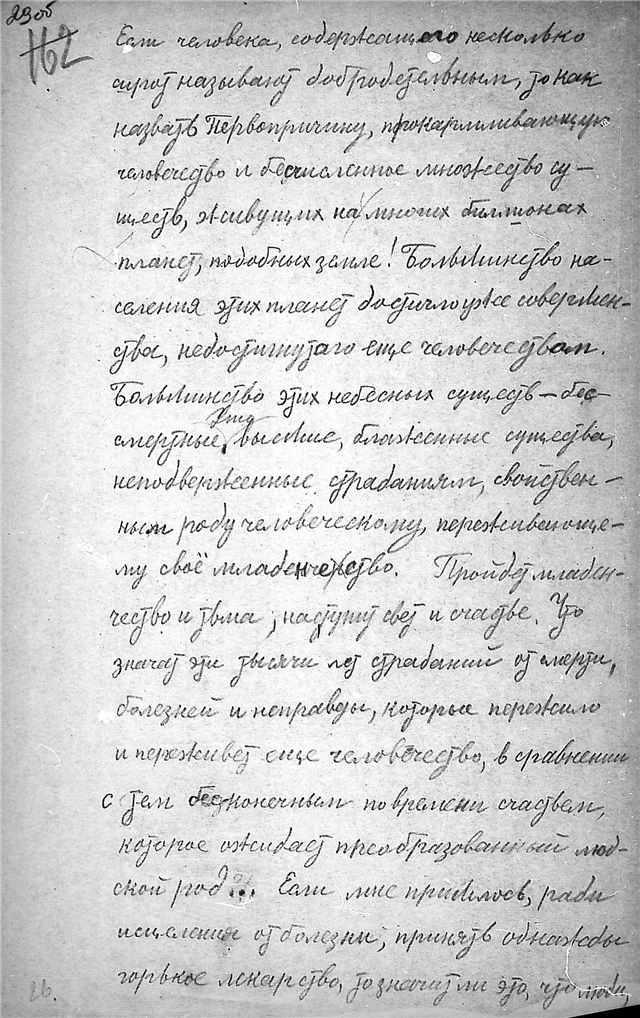 29об
162
Если человека, содержащего несколько
сирот называют добродетельным, то как
назвать Первопричину, прокармливающую
человечество и бесчисленное множество су-
ществ, живущих на многих биллионах
планет, подобных земле! Большинство на-
селения этих планет достигло уже совершен-
ства, недостигнутаго еще человечеством.
Большинство этих небесных существ – бес-
смертные, высшие, блаженные существа,
неподверженные страданиям, свойствен-
ным роду человеческому, переживающе-
му своё младенчество. Пройдет младен-
чество и тьма, наступит свет и счастье. Что
значат эти тысячи лет страданий от смерти,
болезней и неправды, которые пережило
и переживет еще человечество, в сравнении
с тем бесконечным по времени счастьем,
которое ожидает преобразованный люд-
ской род?!. Если мне пришлось, ради
исцеления от болезни, принять однажды
горькое лекарство, то значит ли это, что люди,
26.